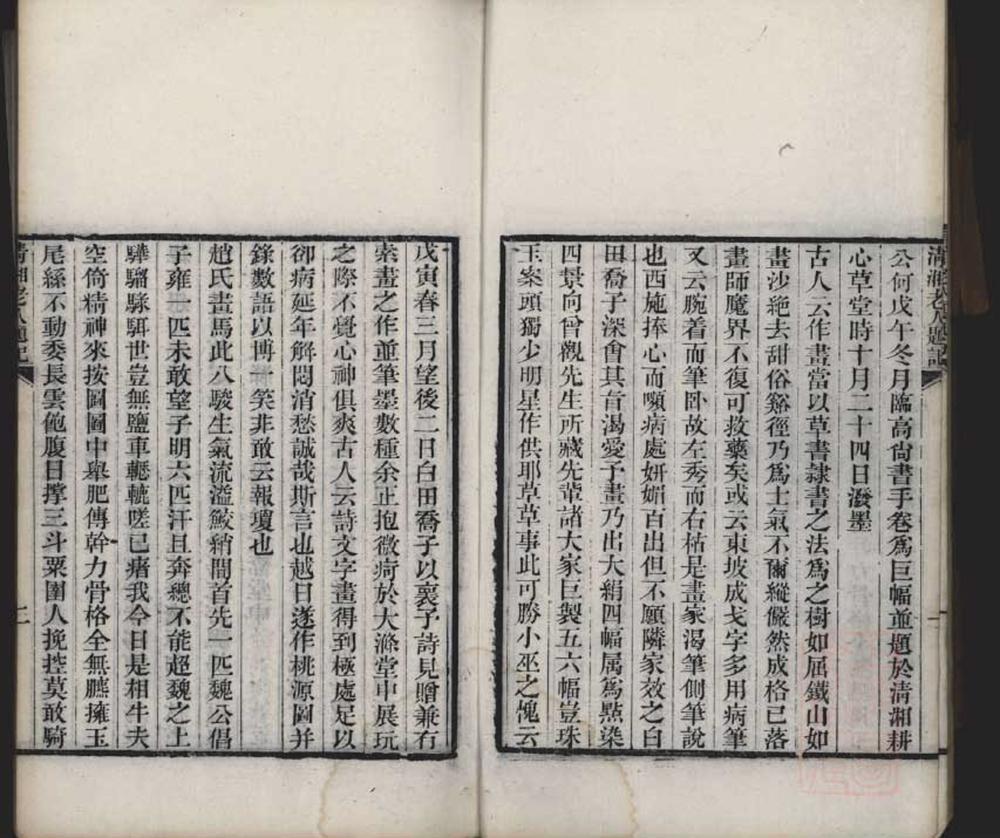 清湘老人題記
公何戊午冬月臨高尙書手卷爲巨幅並題於清湘耕
心草堂時十月二十四日潑墨
古人云作畫當以草書隷書之法爲之樹如屈鐵山如
畫沙絶去甜俗谿徑乃爲士氣不爾縱儼然成格已落
畫師魔界不復可救藥矣或云東坡成戈字多用病筆
又云腕着而筆卧故左秀而右枯是畫家渴筆側筆說
也西施捧心而嚬病處妍媚百出但不願隣家效之白
田喬子深會其旨渴愛予畫乃出大絹四幅属爲㸃染
四景向曾觀先生所藏先輩諸大家巨製五六幅豈珠
玉案頭獨少明星作供耶草草事此可勝小巫之愧云
一
戊寅春三月望後二日白田喬子以裏予詩見贈兼有
素畫之作並筆墨數種余正抱微疴於大滌堂中展玩
之際不覺心神俱爽古人云詩文字畫得到極處足以
卻病延年解悶消愁誠哉斯言也越日遂作桃源圖并
錄數語以博一笑非敢云報瓊也
趙氏畫馬此八駿生氣流溢鮫綃間首先一匹魏公倡
子雍一匹未敢望子明六匹汗且奔總不能超魏之上
驊騮騄駬世豈無鹽車轣轆嗟已瘏我今日是相牛夫
空倚精神來按圖圖中舉肥傳幹力骨格全無臕擁玉
尾絲不動委長雲飽腹日撑三斗粟圉人挽控莫敢騎
清湘老人題記
二